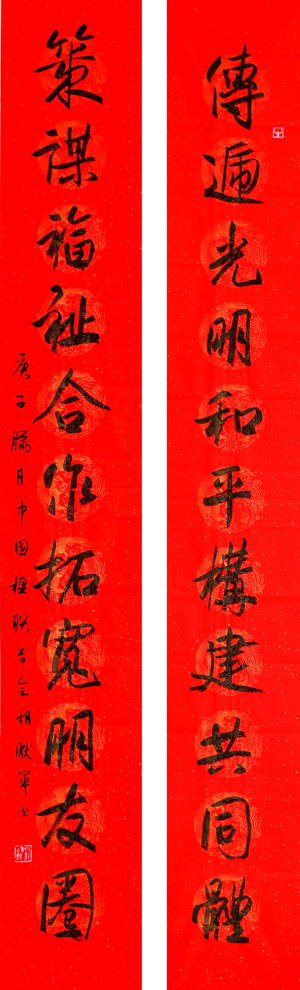 傳遞光明和平構建共同體
策謀福祉合作拓寬朋友圈
庚子臘月中國楹联学会胡